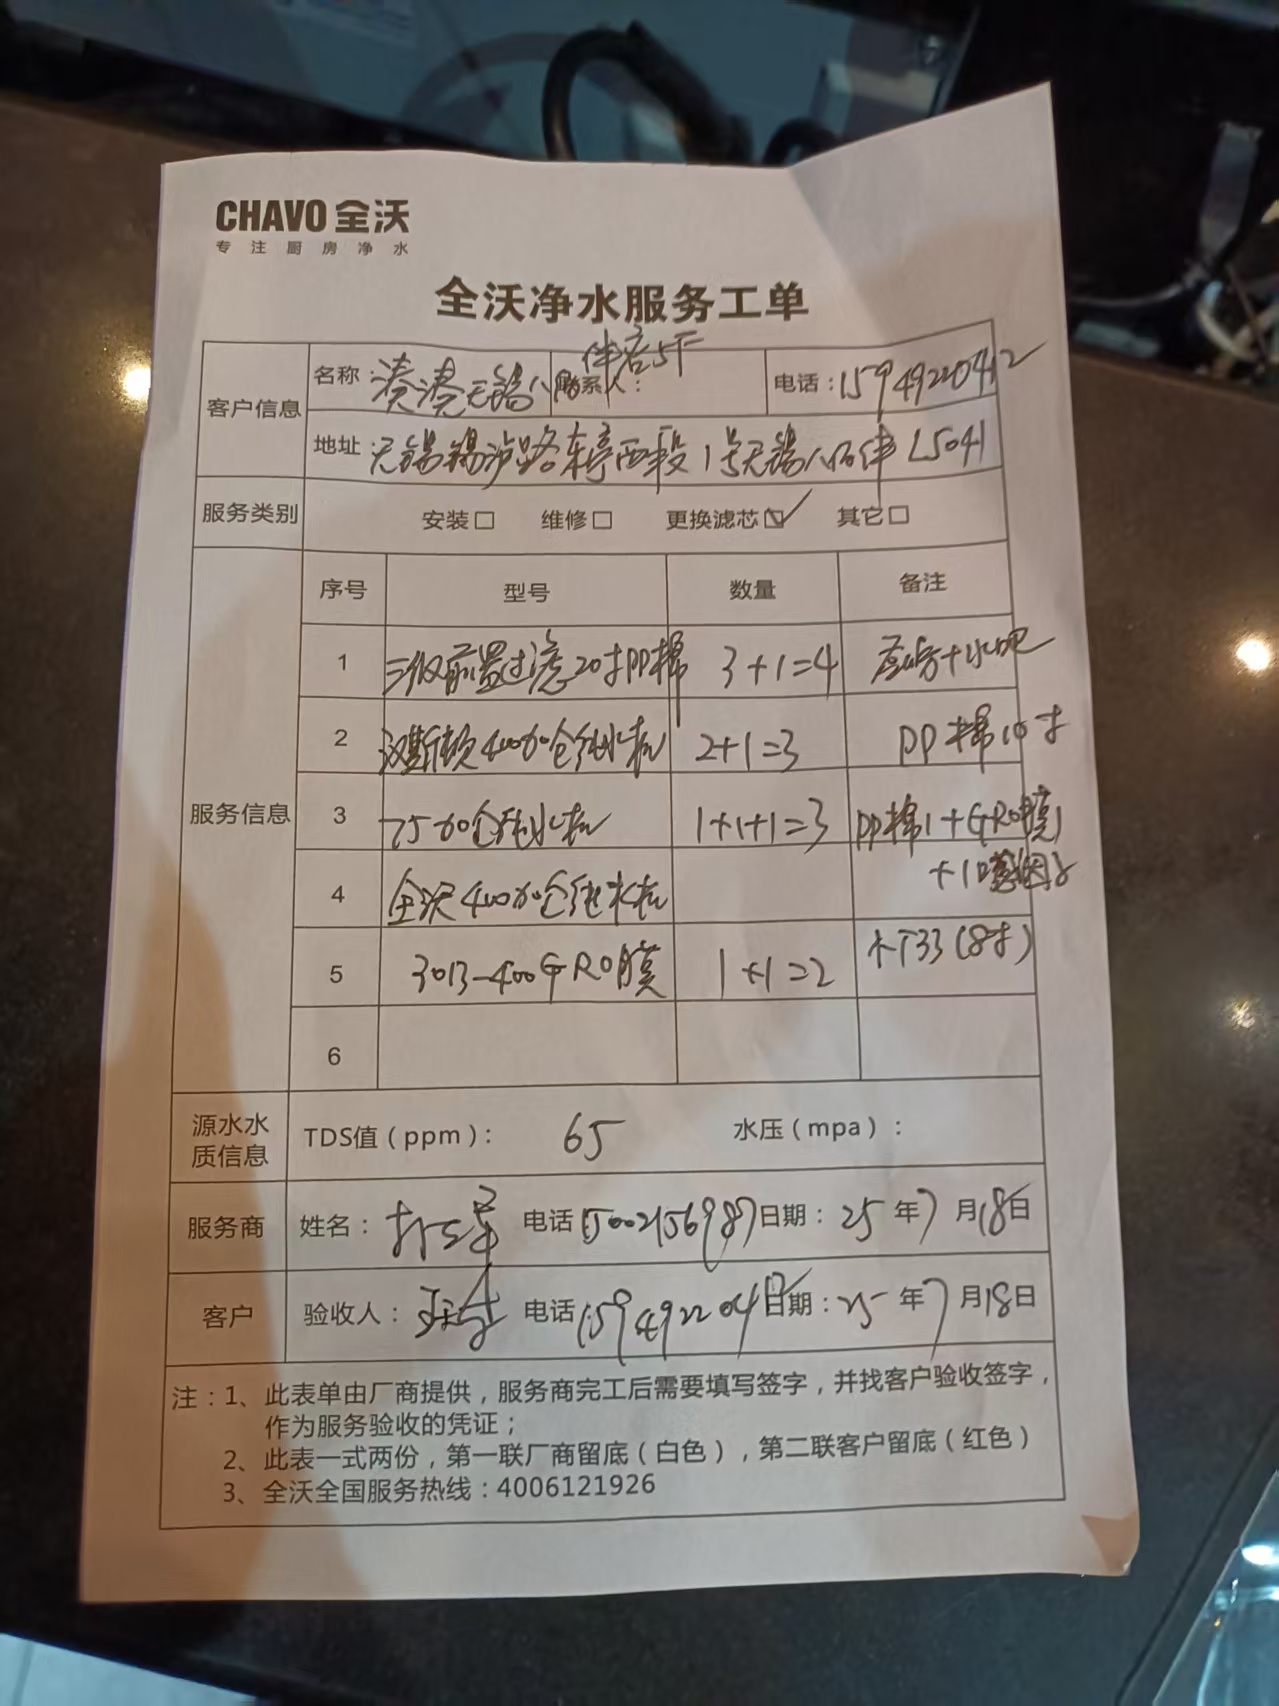 CHAVO 全沃
专注厨房净水
全沃净水服务工单
客户信息
名称：湊湊无锡八佰伴店5F 联系人： 电话：15949220412
地址 无锡锡沪路东亭西段1号无锡八佰伴L5041
服务类别 安装□ 维修□ 更换滤芯☑ 其它□
服务信息
序号 型号 数量 备注
1 三级前置过滤20寸PP棉 3+1=4 厨房+水吧
2 汉斯顿400加仑纯水机 2+1=3 PP棉10寸
3 75加仑纯水机 1+1+1=3 PP棉1+GRO膜1
+1
4 全沃400加仑纯水机
5 3013-400GRO膜 1+1=2 T33(8寸)
6
源水水质信息 TDS值（ppm）： 65 水压（mpa）：
服务商 姓名： 电话 15002156987 日期：25年7月18日
客户 验收人： 电话 1594922041 日期：25年7月18日
注：1、此表单由厂商提供，服务商完工后需要填写签字，并找客户验收签字，
作为服务验收的凭证；
2、此表一式两份，第一联厂商留底（白色），第二联客户留底（红色）
3、全沃全国服务热线：4006121926